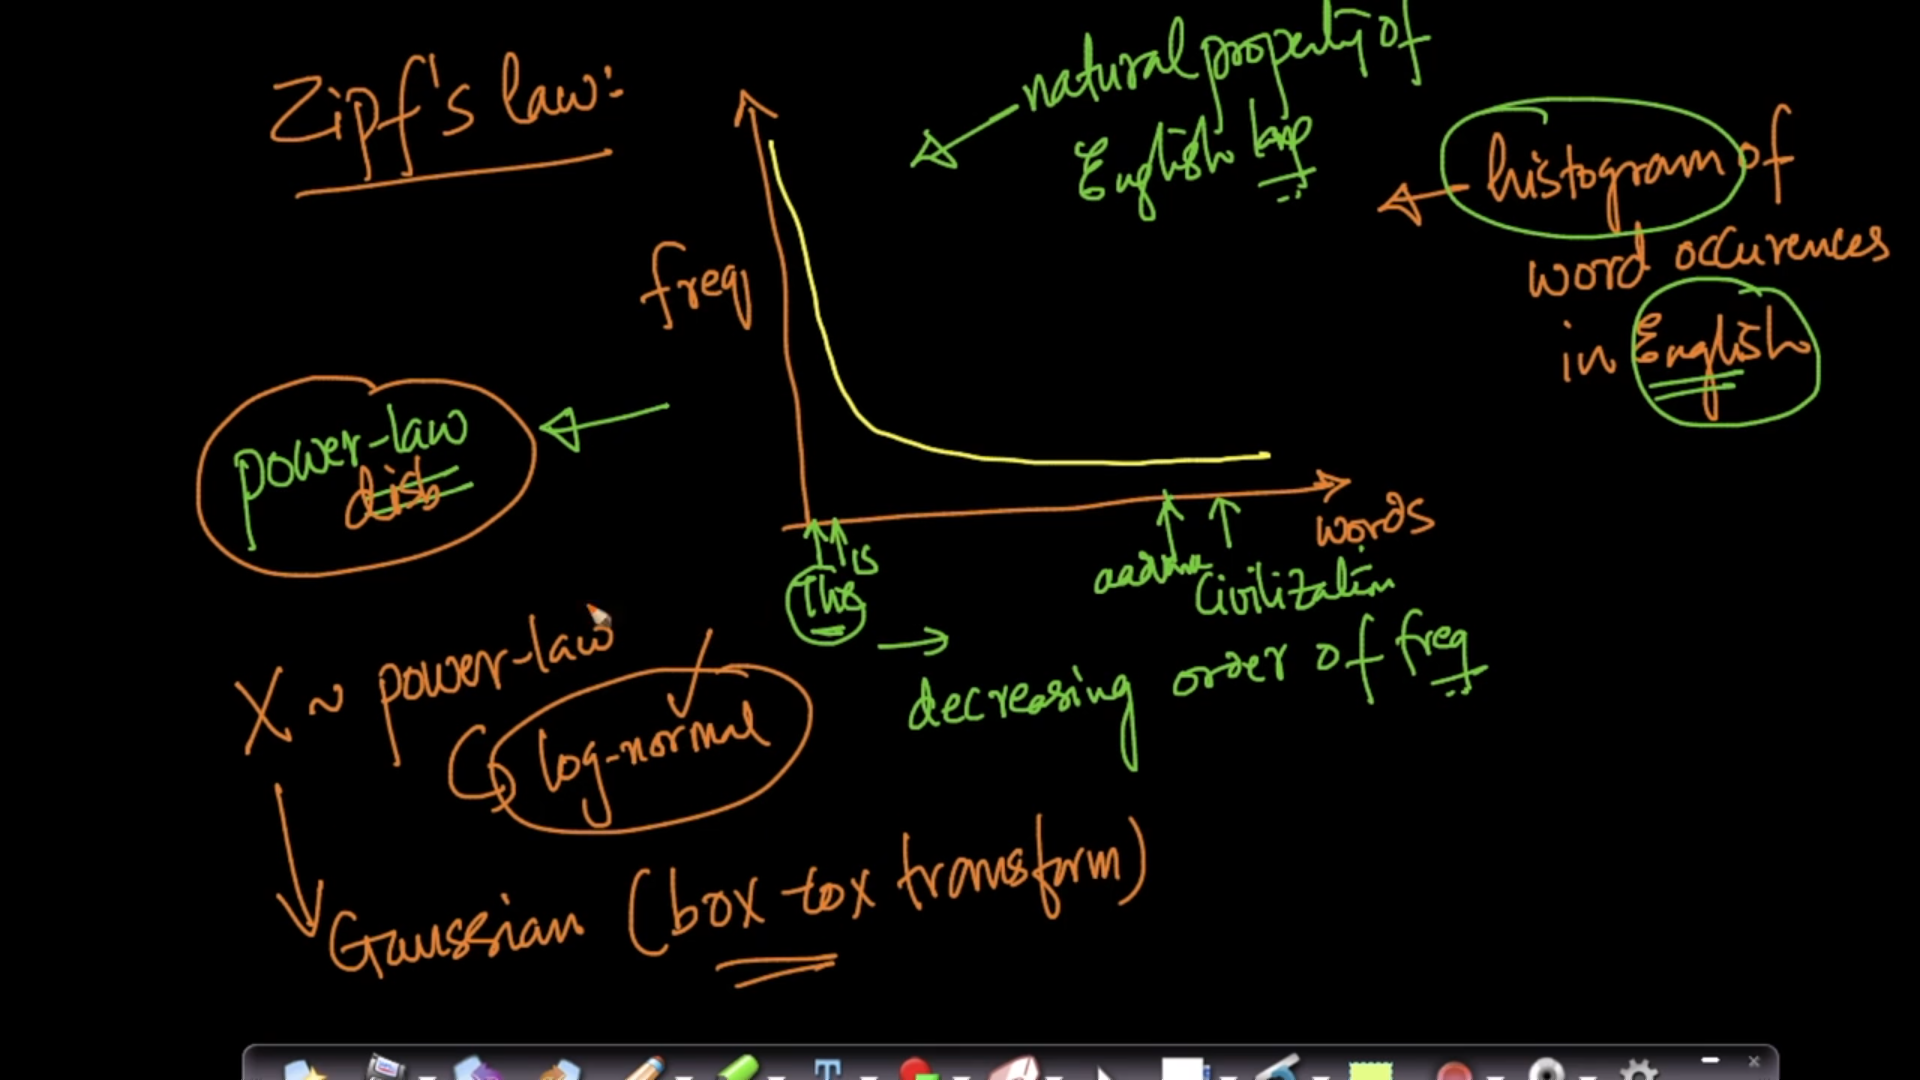 Zipf's law:
natural property of
English lang
histogram of
word occurences
in English
freq
power-law
dist
words
This
is
Civilization
decreasing order of freq
X ~ power-law
log-normal
Gaussian (box-cox transform)
T